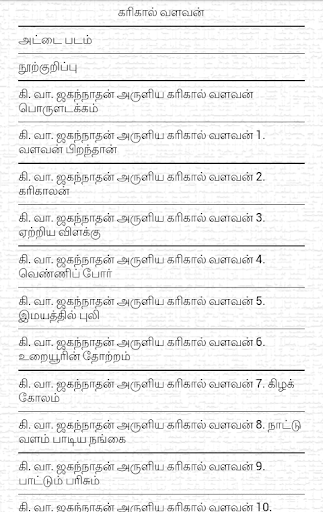 கரிகால் வளவன்
அட்டை படம்
நூற்குறிப்பு
கி. வா. ஜகந்நாதன் அருளிய கரிகால் வளவன்
பொருளடக்கம்
கி. வா. ஜகந்நாதன் அருளிய கரிகால் வளவன் 1.
வளவன் பிறந்தான்
கி. வா. ஜகந்நாதன் அருளிய கரிகால் வளவன் 2.
கரிகாலன்
கி. வா. ஜகந்நாதன் அருளிய கரிகால் வளவன் 3.
ஏற்றிய விளக்கு
கி. வா. ஜகந்நாதன் அருளிய கரிகால் வளவன் 4.
வெண்ணிப் போர்
கி. வா. ஜகந்நாதன் அருளிய கரிகால் வளவன் 5.
இமயத்தில் புலி
கி. வா. ஜகந்நாதன் அருளிய கரிகால் வளவன் 6.
உறையூரின் தோற்றம்
கி. வா. ஜகந்நாதன் அருளிய கரிகால் வளவன் 7. கிழக்
கோலம்
கி. வா. ஜகந்நாதன் அருளிய கரிகால் வளவன் 8. நாட்டு
வளம் பாடிய நங்கை
கி. வா. ஜகந்நாதன் அருளிய கரிகால் வளவன் 9.
பாட்டும் பரிசும்
கி. வா. ஜகந்நாதன் அருளிய கரிகால் வளவன் 10.